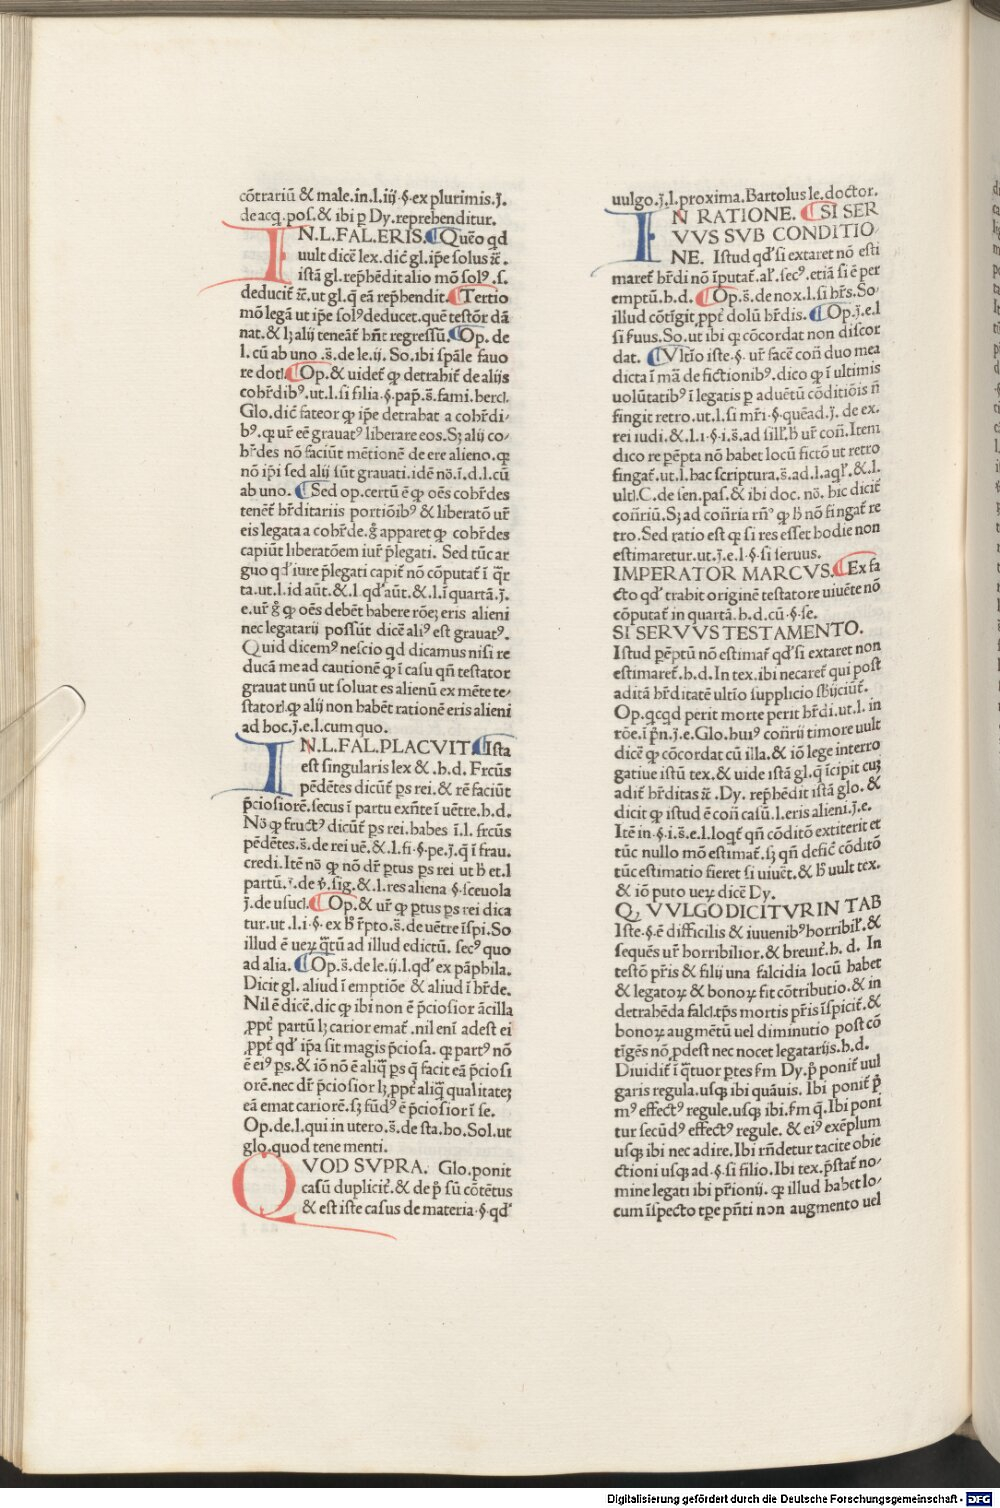 cōtrariū & male.in.l.iij.§.ex plurimis.j̄.
de acq.pos.& ibi p Dy.reprehenditur.
IN.L.FAL.ERIS. Quēo qd
uult dicē lex.dic̄ gl.ip̄e solus ⁊c̄.
istā gl.rep̄hēdit alio mō solꝰ.s.
deducit̄ ⁊c̄.ut gl.q̄ eā rep̄hendit. Tertio
mō legā ut ip̄e solꝰ deducet.quē testōr dā
nat.& lꝫ alij teneāt̄ hn̄t regressū. Op.de
l.cū ab uno.s̄.de le.ij. So.ibi sp̄ale fauo
re dotꝭ. Op.& uidet̄ ꝙ detrahit̄ de alijs
cohr̄dibꝰ.ut.l.si filia.§.pap̄.s̄.fami.hercꝭ.
Glo.dic̄ fateor ꝙ ip̄e detrahat a cohr̄di/
bꝰ.ꝙ ur̄ eē grauatꝰ liberare eos.Sꝫ alij co/
hr̄des nō faciūt mētionē de ere alieno.ꝙ
nō ip̄i sed alij sūt grauati.idē nō.ī.d.l.cū
ab uno. Sed op.certū ē ꝙ oēs cohr̄des
tenēt̄ hr̄ditariis portiōibꝰ & liberatō ur̄
eis legata a cohr̄de.g̊ apparet ꝙ cohr̄des
capiūt liberatōem iur̄ p̄legati. Sed tūc ar
guo qđ iure p̄legati capit̄ nō cōputat̄ ī q̄r
ta.ut.l.id aūt.&.l.qđ aūt.&.l.ī quartā.j̄.
e.ur̄ g̊ ꝙ oēs debēt habere rōeꝫ eris alieni
nec legatarij possūt dicē aliꝰ est grauatꝰ.
Quid dicemꝰ nescio qd dicamus nisi re
ducā me ad cautionē ꝙ ī casu qn̄ testator
grauat unū ut soluat es alienū ex mēte te/
statorꝭ.ꝙ alij non habēt rationē eris alieni
ad hoc.j̄.e.l.cum quo.
IN.L.FAL.PLACVIT. Ista
est singularis lex &.h.d. Frcūs
pēdētes dicūt̄ ps rei.& rē faciūt
p̄ciosiorē.secus ī partu exn̄te ī uētre.h.d.
Nō ꝙ fructꝰ dicūt̄ ps rei.habes ī.l.frcūs
pēdētes.s̄.de rei uē.&.l.fi.§.pe.j̄.q̄ ī frau.
credi.Itē nō ꝙ nō dr̄ ptus ps rei ut h̄ et.l
partū.j̄.de v̄.sig.&.l.res aliena §.sceuola
j̄.de usucꝭ. Op.& ur̄ ꝙ ptus ps rei dica
tur.ut.l.i.§.ex h̄ r̄pto.s̄.de uētre īspi.So
illud ē ueꝝ q̄tū ad illud edictū. secꝰ quo
ad alia. Op.s̄.de le.ij.l.qđ ex pāphila.
Dicit gl.aliud ī emptiōe & aliud ī hr̄de.
Nil ē dicē.dic ꝙ ibi non ē p̄ciosior ācilla
ꝓpt̄ partū lꝫ carior emat̄.nil enī adest ei
ꝓpt̄ qđ ip̄a sit magis p̄ciosa. ꝙ partꝰ nō
ē eiꝰ ps.& iō nō ē aliq̄ ps q̄ facit eā p̄ciosi
orē.nec dr̄ p̄ciosior lꝫ ꝓpt̄ aliq̄ qualitateꝫ
eā emat cariorē.sꝫ fūdꝰ ē p̄ciosior ī se.
Op.de.l.qui in utero.s̄.de sta.ho.Sol.ut
glo.quod tene menti.
QVOD SVPRA. Glo.ponit
casū duplicit̄.& de p̄ sū cōtētus
& est iste casus de materia.§.qđ
uulgo.j̄.l.proxima.Bartolus le.doctor.
IN RATIONE. SI SER
VVS SVB CONDITIO
NE. Istud qđ si extaret nō esti
maret̄ hr̄di nō īputat̄.al̄.secꝰ.etiā si ē per
emptū.h.d. Op.s̄.de nox.l.si hr̄s.So/
illud cōtīgit ꝓpt̄ dolū hr̄dis. Op.j̄.e.l
si suus.So.ut ibi ꝙ cōcordat non discor
dat. Vltīo iste.§.ur̄ facē con̄ duo mea
dicta ī mā de fictionibꝰ.dico ꝙ ī ultimis
uolūtatibꝰ ī legatis p aduētū cōditiōis n̄
fingit retro.ut.l.si mr̄i.§.quēad.j̄.de ex.
rei iudi.&.l.i.§.i.s̄.ad sill̄.h̄ ur̄ con̄.Item
dico re pēpta nō habet locū fictō ut retro
fingat̄.ut.l.hac scriptura.s̄.ad.l.aql̄.&.l.
ultꝭ.C.de sen.pas.& ibi doc.nō.hic dicit̄
con̄riū.Sꝫ ad con̄ria rn̄° ꝙ h̄ nō fingat̄ re
tro.Sed ratio est ꝙ si res esset hodie non
estimaretur.ut.j̄.e.l.§.si seruus.
IMPERATOR MARCVS. Ex fa
cto qđ trahit originē testatore uiuēte nō
cōputat̄ in quartā.h.d.cū.§.se.
SI SERVVS TESTAMENTO.
Istud pēptū nō estimat̄ qđ si extaret non
estimaret̄.h.d.In tex.ibi necaret̄ qui post
aditā hr̄ditatē ultīo supplicio sbijciūt̄.
Op.qcqd perit morte perit hr̄di.ut.l. in
rōe.ī p̄n.j̄.e.Glo.huiꝰ con̄rii timore uult
dicē ꝙ cōcordat cū illa.& iō lege interro
gatiue istū tex.& uide istā gl.q̄ īcipit cuꝫ
adit̄ hr̄ditas ⁊c̄.Dy. rep̄hēdit istā glo.&
dicit ꝙ istud ē con̄ casū.l.eris alieni.j̄.e.
Itē in.§.i.s̄.e.l.loqt̄ qn̄ cōditō extiterit et
tūc nullo mō estimat̄.sꝫ qn̄ defic̄ cōditō
tūc estimatio fieret si uiuēt̄.& h̄ uult tex.
& iō puto ueꝝ dicē Dy.
Q, VVLGO DICITVR IN TAB
Iste.§.ē difficilis & iuuenibꝰ horribil̄.&
sequēs ur̄ horribilior.& breuit̄.h.d. In
testō pr̄is & filij una falcidia locū habet
& legatoꝝ & bonoꝝ fit cōtributio.& in
detrahēda falcꝭ.tp̄s mortis pr̄is īspicit̄.&
bonoꝝ augmētū uel diminutio post cō
tīgēs nō ꝓdest nec nocet legatarijs.h.d.
Diuidit̄ ī q̄tuor ptes sm Dy.p̄ ponit̄ uul
garis regula.usqꝫ ibi quāuis. Ibi ponit̄ p̄
mꝰ effectꝰ regule.usqꝫ ibi.sm q̄.Ibi poni
tur secūdꝰ effectꝰ regule. & eiꝰ exēplum
usqꝫ ibi nec adire.Ibi rn̄detur tacite obie
ctioni usqꝫ ad.§.si filio.Ibi tex.p̄stat̄ no/
mine legati ibi pr̄ionij.ꝙ illud habet lo/
cum īspecto tp̄e p̄n̄ti non augmento uel
Digitalisierung gefördert durch die Deutsche Forschungsgemeinschaft - DFG